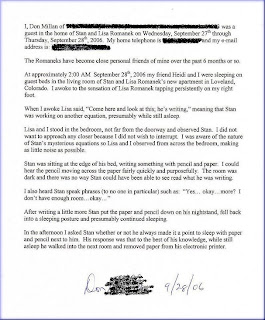 I, Don Millan of was a
guest in the home of Stan and Lisa Romanek on Wednesday, September 27th through
Thursday, September 28th, 2006. My home telephone is and my e-mail
address is:
The Romaneks have become close personal friends of mine over the past 6 months or so.
At approximately 2:00 AM September 28th, 2006 my friend Heidi and I were sleeping on
guest beds in the living room of Stan and Lisa Romanek's new apartment in Loveland,
Colorado. I awoke to the sensation of Lisa Romanek tapping persistently on my right
foot.
When I awoke Lisa said, "Come here and look at this; he's writing," meaning that Stan
was working on another equation, presumably while still asleep.
Lisa and I stood in the bedroom, not far from the doorway and observed Stan. I did not
want to approach any closer because I did not wish to interrupt. I was aware of the nature
of Stan's mysterious equations so Lisa and I observed from across the bedroom, making
as little noise as possible.
Stan was sitting at the edge of his bed, writing something with pencil and paper. I could
hear the pencil moving across the paper fairly quickly and purposefully. The room was
dark and there was no way Stan could have been able to see read what he was writing.
I also heard Stan speak phrases (to no one in particular) such as: "Yes... okay...more? I
don't have enough room...okay..."
After writing a little more Stan put the paper and pencil down on his nightstand, fell back
into a sleeping posture and presumably continued sleeping.
In the afternoon I asked Stan whether or not he always made it a point to sleep with paper
and pencil next to him. His response was that to the best of his knowledge, while still
asleep he walked into the next room and removed paper from his electronic printer.
Don 9/28/06